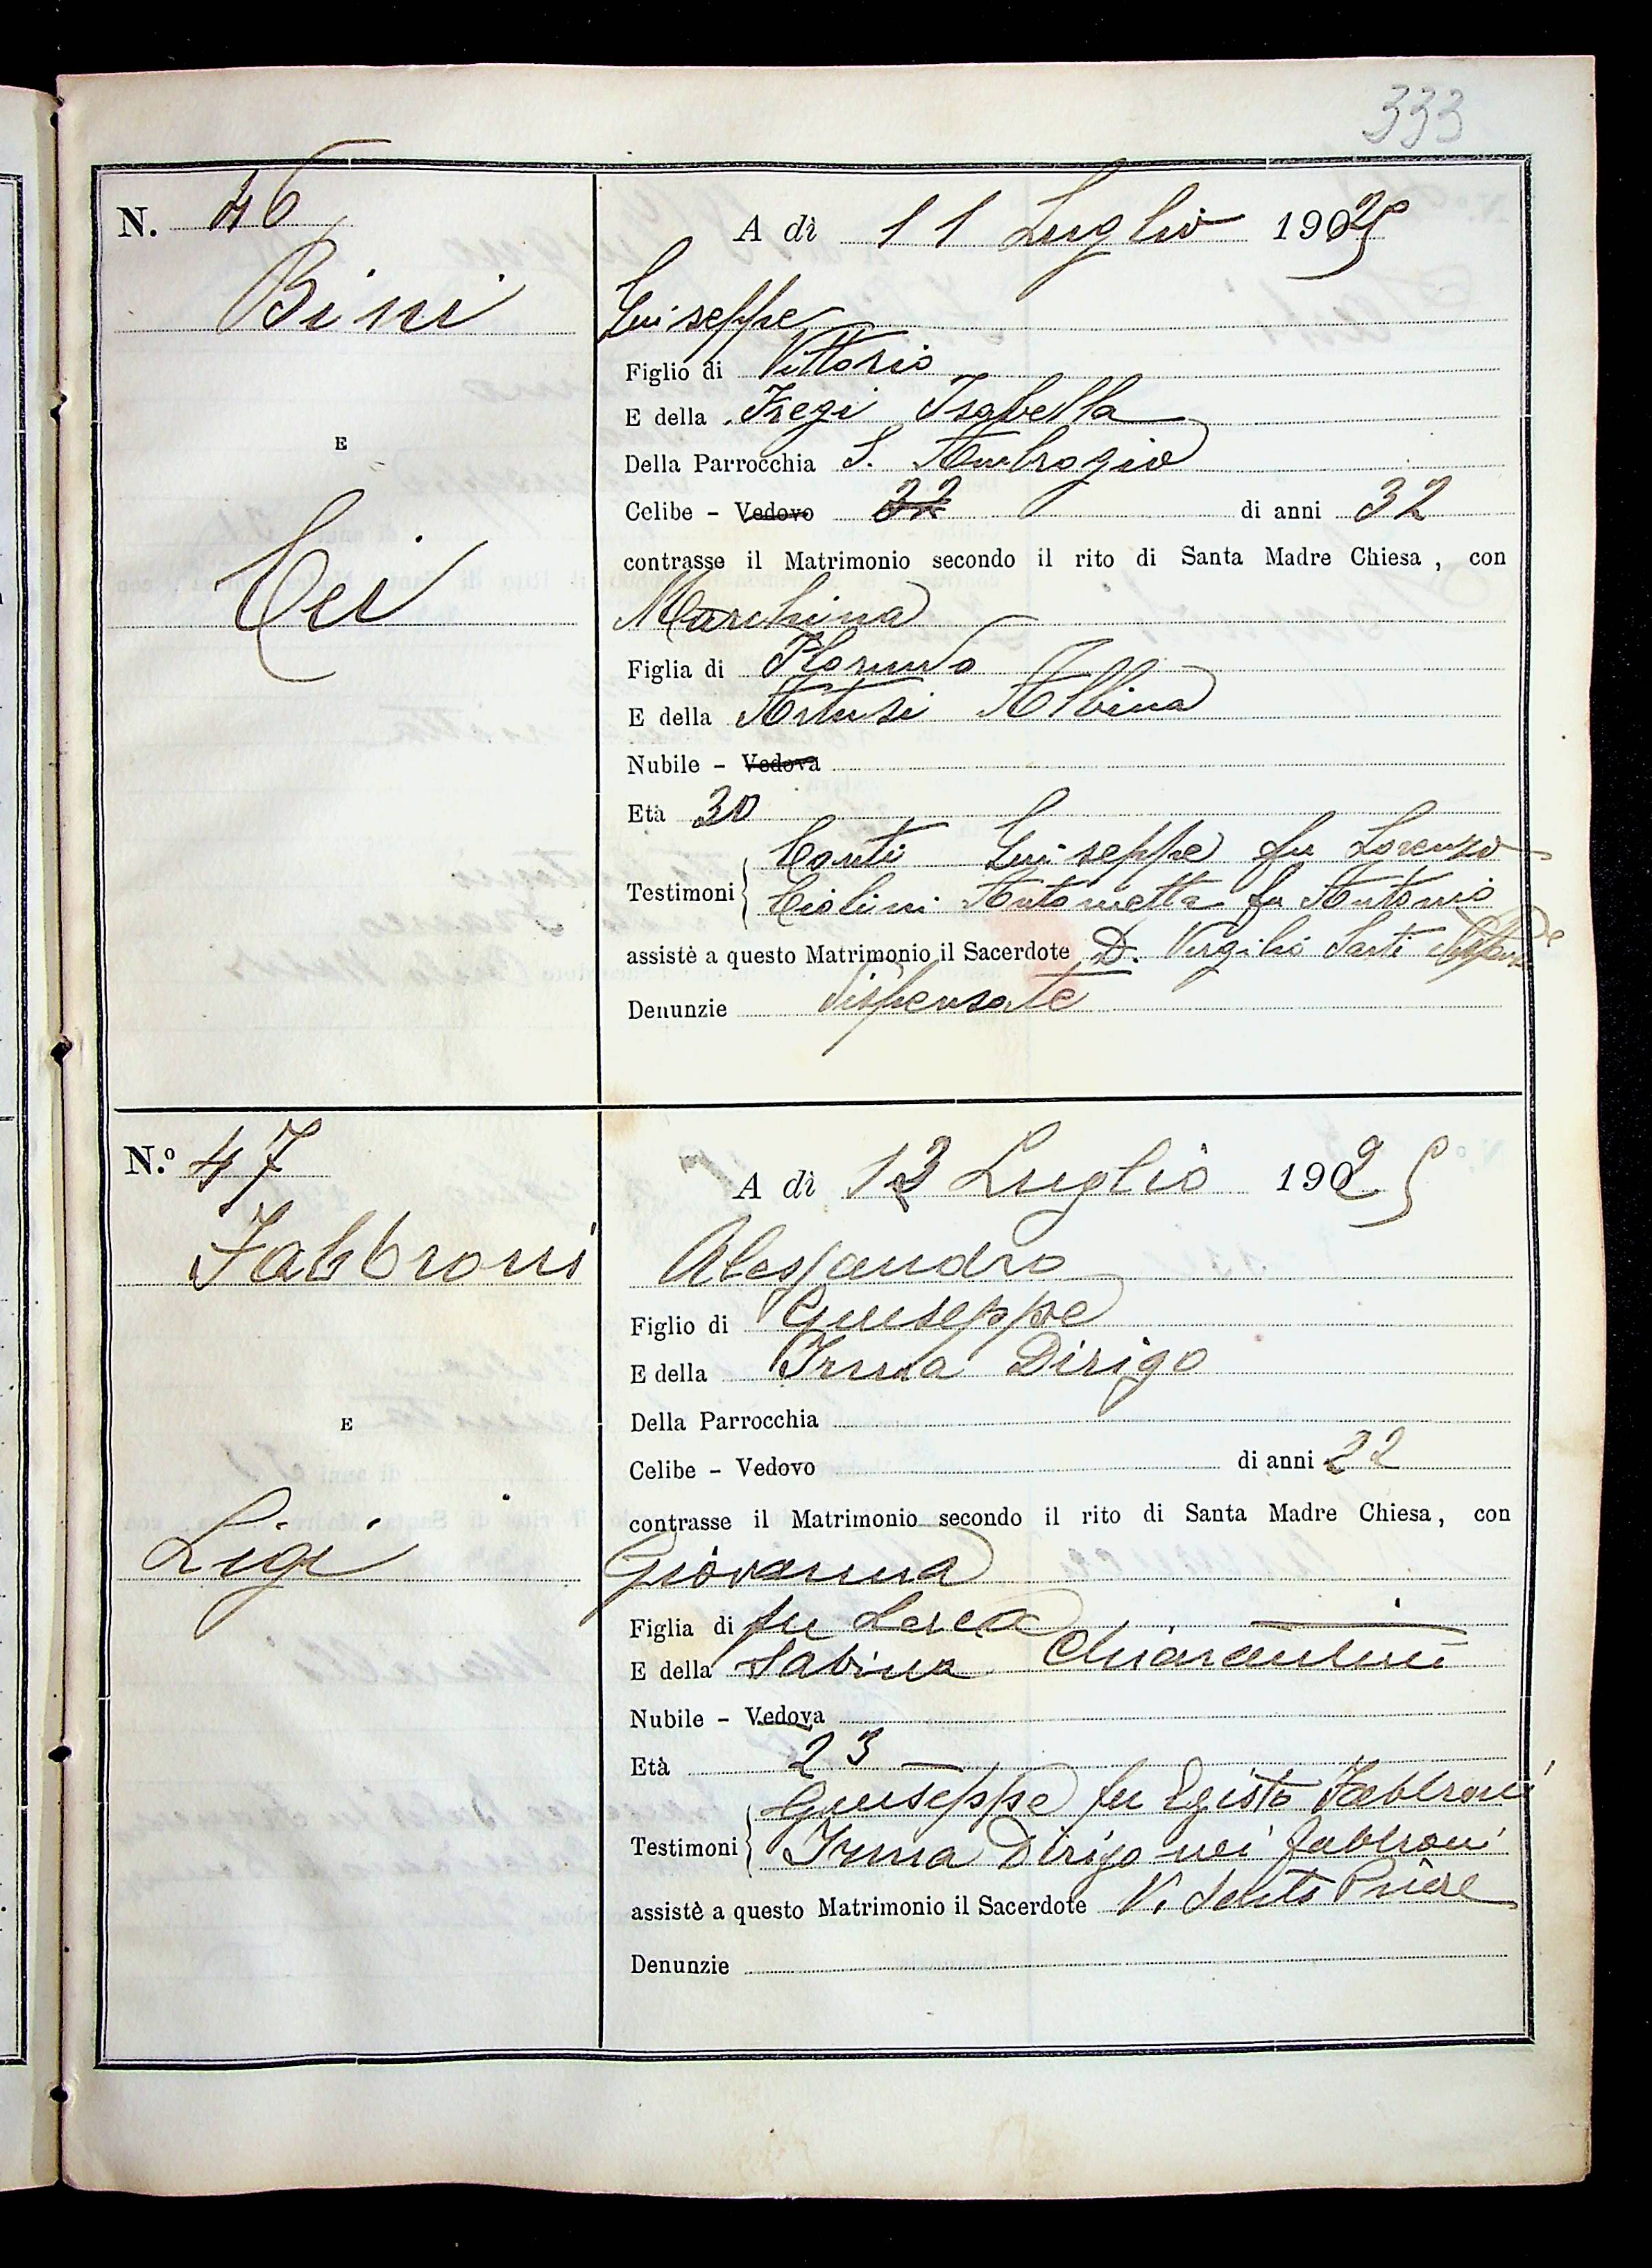 333
N. 46
A dì 11 Luglio 1925
Bini
Giuseppe
Figlio di Vittorio
E della Fregi Isabella
E
Della Parrocchia S. Ambrogio
Celibe - Vedovo 32 di anni 32
contrasse il Matrimonio secondo il rito di Santa Madre Chiesa, con
Cei
Marchina
Figlia di
E della Artusi Albina
Nubile - Vedova
Età 30
Conti Giuseppe fu Lorenzo
Testimoni
Ciolini Antonietta fu Antonio
assistè a questo Matrimonio il Sacerdote D. Virgilio Santi
Denunzie dispensate
N.º 47
A dì 12 Luglio 1925
Fabbroni
Alessandro
Figlio di Giuseppe
E della Irma Dirigo
E
Della Parrocchia
Celibe - Vedovo di anni 22
contrasse il Matrimonio secondo il rito di Santa Madre Chiesa, con
Ligi
Giovanna
Figlia di fu Luca
E della Sabina Chiarantini
Nubile - Vedova
Età 23
Giuseppe fu Egisto Fabbroni
Testimoni
Irma Dirigo nei Fabbroni
assistè a questo Matrimonio il Sacerdote V. Santi Priore
Denunzie